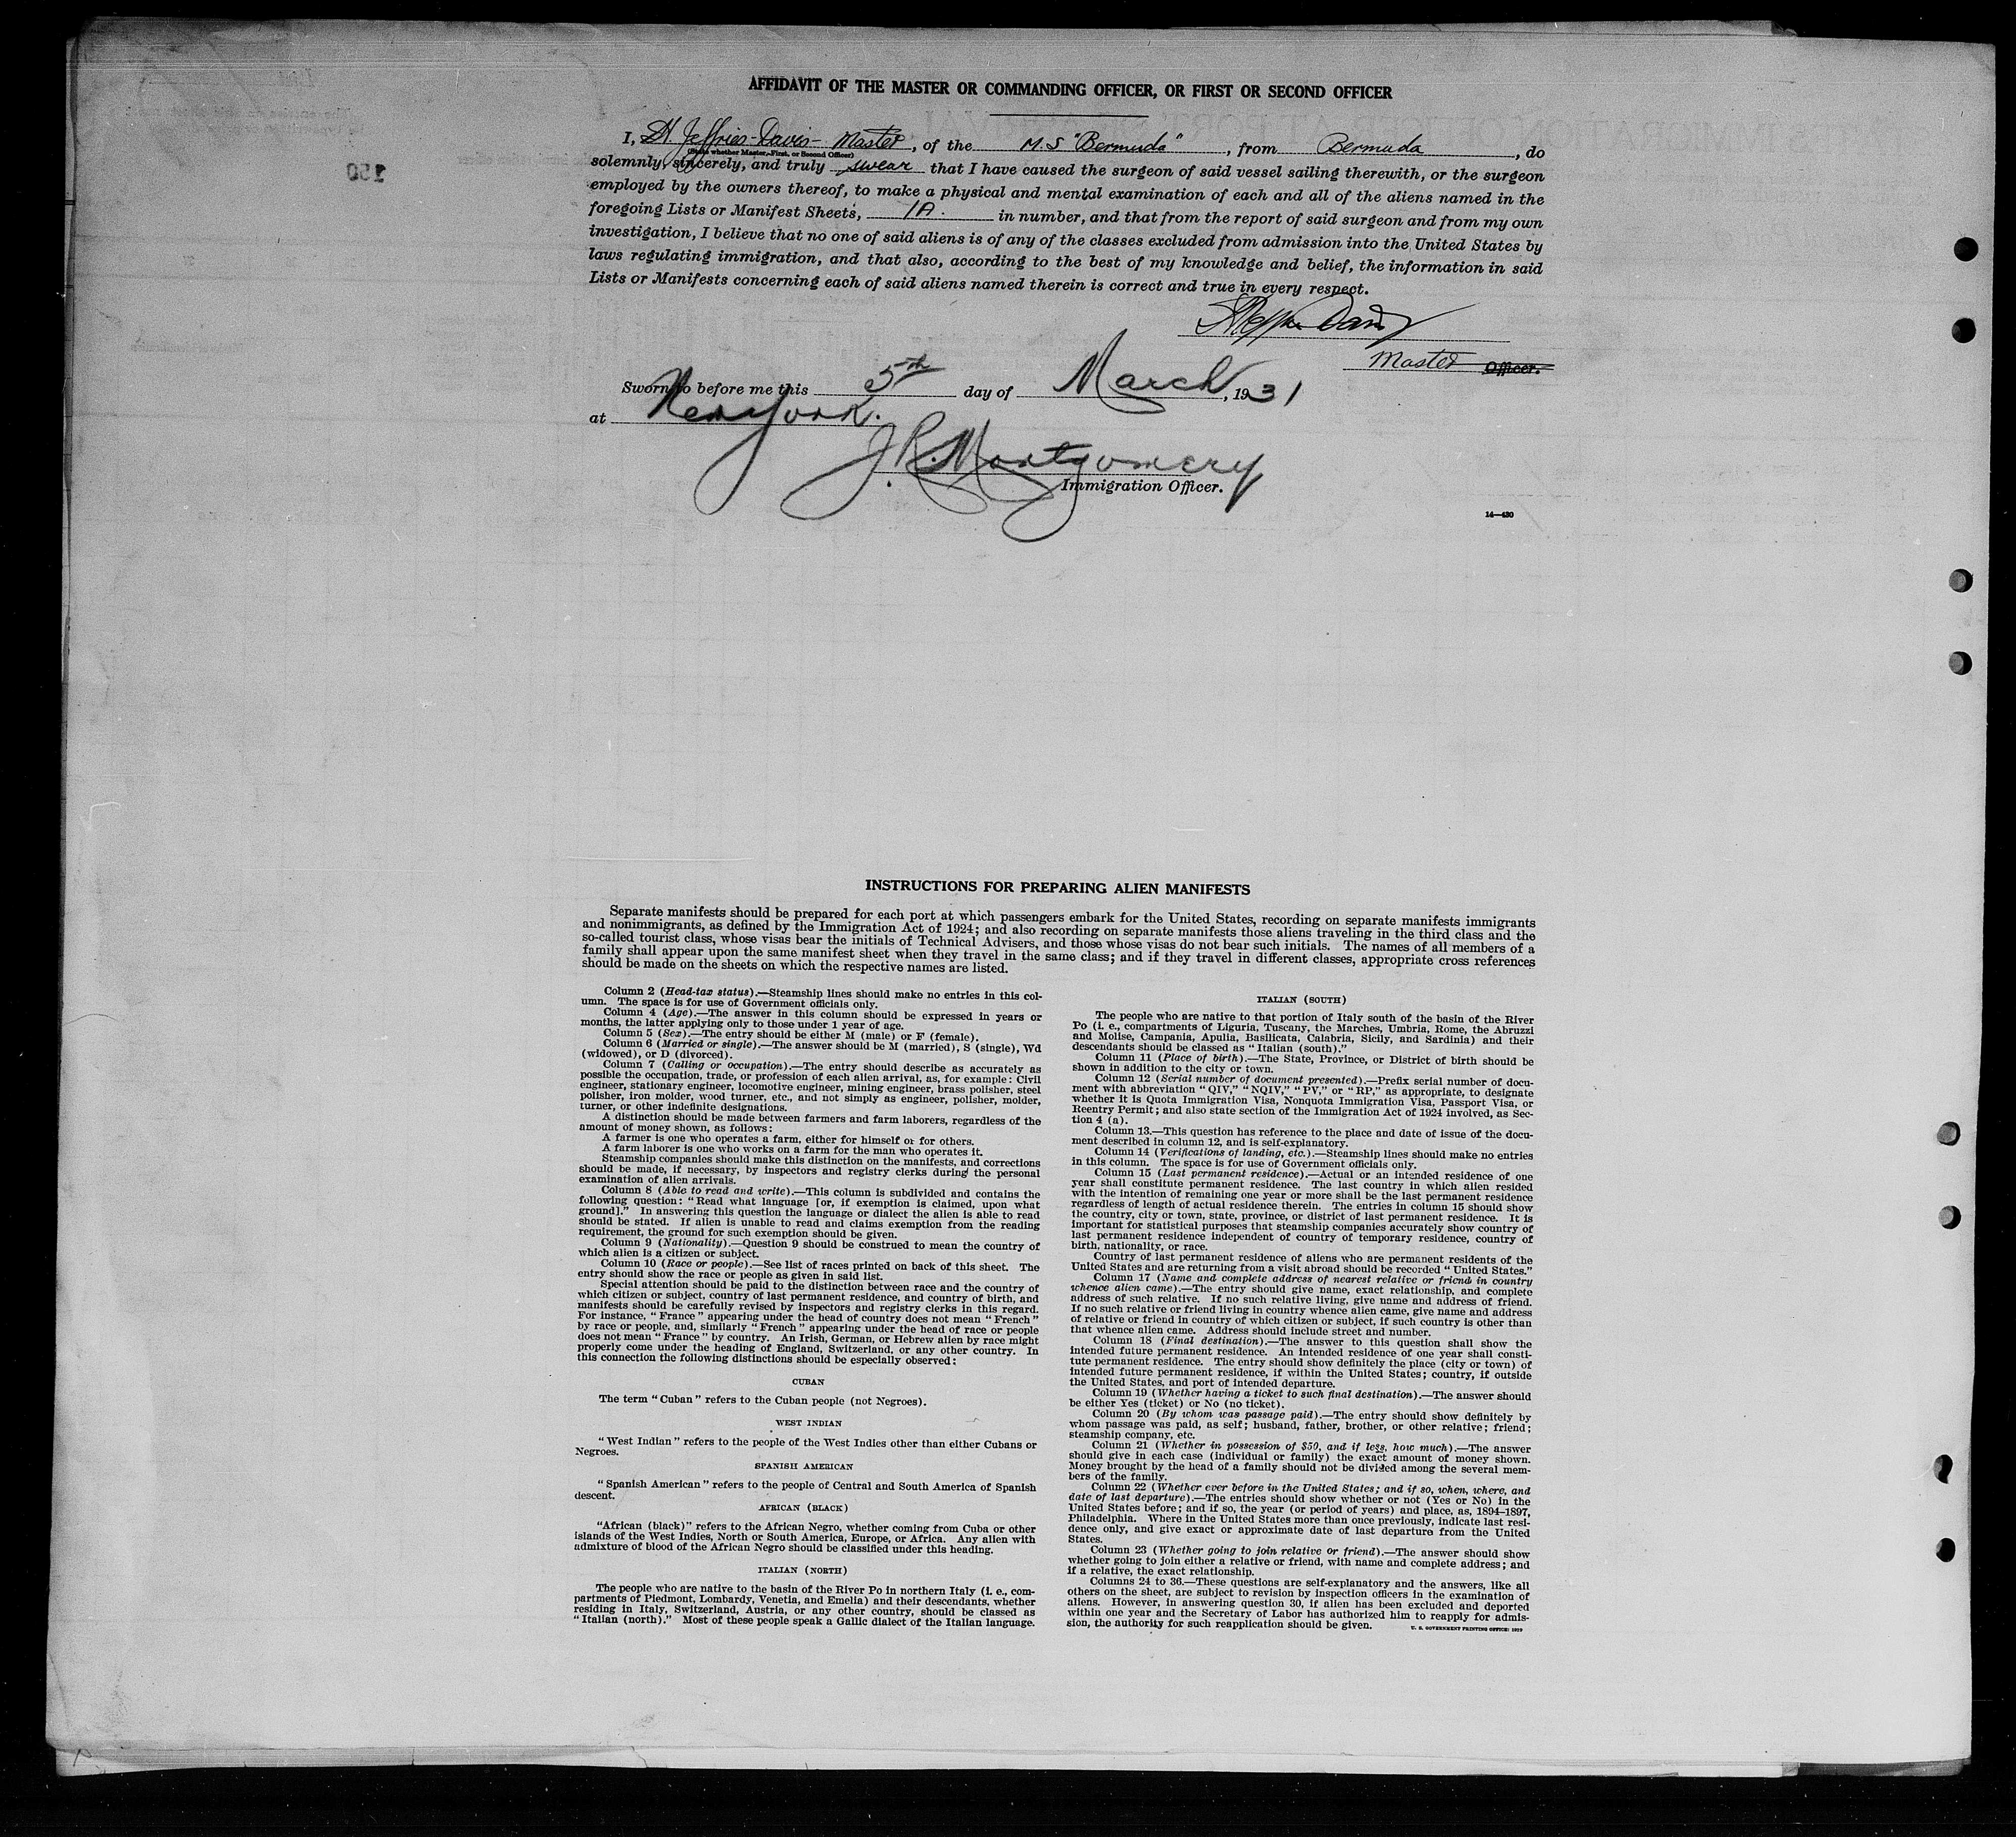 AFFIDAVIT OF THE MASTER OR COMMANDING OFFICER, OR FIRST OR SECOND OFFICER
I, H. Jeffries-Davis - Master, of the M.S "Bermuda", from Bermuda, do
(State whether Master, First, or Second Officer)
solemnly, sincerely, and truly swear that I have caused the surgeon of said vessel sailing therewith, or the surgeon
employed by the owners thereof, to make a physical and mental examination of each and all of the aliens named in the
foregoing Lists or Manifest Sheets, 1A. in number, and that from the report of said surgeon and from my own
investigation, I believe that no one of said aliens is of any of the classes excluded from admission into the United States by
laws regulating immigration, and that also, according to the best of my knowledge and belief, the information in said
Lists or Manifests concerning each of said aliens named therein is correct and true in every respect.
Master Officer.
Sworn to before me this 5th day of March, 1931
at New York.
J. R. Montgomery
Immigration Officer.
14—430
150
INSTRUCTIONS FOR PREPARING ALIEN MANIFESTS
Separate manifests should be prepared for each port at which passengers embark for the United States, recording on separate manifests immigrants
and nonimmigrants, as defined by the Immigration Act of 1924; and also recording on separate manifests those aliens traveling in the third class and the
so-called tourist class, whose visas bear the initials of Technical Advisers, and those whose visas do not bear such initials. The names of all members of a
family shall appear upon the same manifest sheet when they travel in the same class; and if they travel in different classes, appropriate cross references
should be made on the sheets on which the respective names are listed.
Column 2 (Head-tax status).—Steamship lines should make no entries in this col-
umn. The space is for use of Government officials only.
Column 4 (Age).—The answer in this column should be expressed in years or
months, the latter applying only to those under 1 year of age.
Column 5 (Sex).—The entry should be either M (male) or F (female).
Column 6 (Married or single).—The answer should be M (married), S (single), Wd
(widowed), or D (divorced).
Column 7 (Calling or occupation).—The entry should describe as accurately as
possible the occupation, trade, or profession of each alien arrival, as, for example: Civil
engineer, stationary engineer, locomotive engineer, mining engineer, brass polisher, steel
polisher, iron molder, wood turner, etc., and not simply as engineer, polisher, molder,
turner, or other indefinite designations.
A distinction should be made between farmers and farm laborers, regardless of the
amount of money shown, as follows:
A farmer is one who operates a farm, either for himself or for others.
A farm laborer is one who works on a farm for the man who operates it.
Steamship companies should make this distinction on the manifests, and corrections
should be made, if necessary, by inspectors and registry clerks during the personal
examination of alien arrivals.
Column 8 (Able to read and write).—This column is subdivided and contains the
following question: "Read what language [or, if exemption is claimed, upon what
ground]." In answering this question the language or dialect the alien is able to read
should be stated. If alien is unable to read and claims exemption from the reading
requirement, the ground for such exemption should be given.
Column 9 (Nationality).—Question 9 should be construed to mean the country of
which alien is a citizen or subject.
Column 10 (Race or people).—See list of races printed on back of this sheet. The
entry should show the race or people as given in said list.
Special attention should be paid to the distinction between race and the country of
which citizen or subject, country of last permanent residence, and country of birth, and
manifests should be carefully revised by inspectors and registry clerks in this regard.
For instance, "France" appearing under the head of country does not mean "French"
by race or people, and, similarly "French" appearing under the head of race or people
does not mean "France" by country. An Irish, German, or Hebrew alien by race might
properly come under the heading of England, Switzerland, or any other country. In
this connection the following distinctions should be especially observed:
CUBAN
The term "Cuban" refers to the Cuban people (not Negroes).
WEST INDIAN
"West Indian" refers to the people of the West Indies other than either Cubans or
Negroes.
SPANISH AMERICAN
"Spanish American" refers to the people of Central and South America of Spanish
descent.
AFRICAN (BLACK)
"African (black)" refers to the African Negro, whether coming from Cuba or other
islands of the West Indies, North or South America, Europe, or Africa. Any alien with
admixture of blood of the African Negro should be classified under this heading.
ITALIAN (NORTH)
The people who are native to the basin of the River Po in northern Italy (i. e., com-
partments of Piedmont, Lombardy, Venetia, and Emelia) and their descendants, whether
residing in Italy, Switzerland, Austria, or any other country, should be classed as
"Italian (north)." Most of these people speak a Gallic dialect of the Italian language.
ITALIAN (SOUTH)
The people who are native to that portion of Italy south of the basin of the River
Po (i. e., compartments of Liguria, Tuscany, the Marches, Umbria, Rome, the Abruzzi
and Molise, Campania, Apulia, Basilicata, Calabria, Sicily, and Sardinia) and their
descendants should be classed as "Italian (south)."
Column 11 (Place of birth).—The State, Province, or District of birth should be
shown in addition to the city or town.
Column 12 (Serial number of document presented).—Prefix serial number of docu-
ment with abbreviation "QIV," "NQIV," "PV," or "RP," as appropriate, to designate
whether it is Quota Immigration Visa, Nonquota Immigration Visa, Passport Visa, or
Reentry Permit; and also state section of the Immigration Act of 1924 involved, as Sec-
tion 4 (a).
Column 13.—This question has reference to the place and date of issue of the docu-
ment described in column 12, and is self-explanatory.
Column 14 (Verifications of landing, etc.).—Steamship lines should make no entries
in this column. The space is for use of Government officials only.
Column 15 (Last permanent residence).—Actual or an intended residence of one
year shall constitute permanent residence. The last country in which alien resided
with the intention of remaining one year or more shall be the last permanent residence
regardless of length of actual residence therein. The entries in column 15 should show
the country, city or town, state, province, or district of last permanent residence. It is
important for statistical purposes that steamship companies accurately show country of
last permanent residence independent of country of temporary residence, country of
birth, nationality, or race.
Country of last permanent residence of aliens who are permanent residents of the
United States and are returning from a visit abroad should be recorded "United States."
Column 17 (Name and complete address of nearest relative or friend in country
whence alien came).—The entry should give name, exact relationship, and complete
address of such relative. If no such relative living, give name and address of friend.
If no such relative or friend living in country whence alien came, give name and address
of relative or friend in country of which citizen or subject, if such country is other than
that whence alien came. Address should include street and number.
Column 18 (Final destination).—The answer to this question shall show the
intended future permanent residence. An intended residence of one year shall consti-
tute permanent residence. The entry should show definitely the place (city or town) of
intended future permanent residence, if within the United States; country, if outside
the United States, and port of intended departure.
Column 19 (Whether having a ticket to such final destination).—The answer should
be either Yes (ticket) or No (no ticket).
Column 20 (By whom was passage paid).—The entry should show definitely by
whom passage was paid, as self; husband, father, brother, or other relative; friend;
steamship company, etc.
Column 21 (Whether in possession of $50, and if less, how much).—The answer
should give in each case (individual or family) the exact amount of money shown.
Money brought by the head of a family should not be divided among the several mem-
bers of the family.
Column 22 (Whether ever before in the United States; and if so, when, where, and
date of last departure).—The entries should show whether or not (Yes or No) in the
United States before; and if so, the year (or period of years) and place, as, 1894–1897,
Philadelphia. Where in the United States more than once previously, indicate last resi-
dence only, and give exact or approximate date of last departure from the United
States.
Column 23 (Whether going to join relative or friend).—The answer should show
whether going to join either a relative or friend, with name and complete address; and
if a relative, the exact relationship.
Columns 24 to 36.—These questions are self-explanatory and the answers, like all
others on the sheet, are subject to revision by inspection officers in the examination of
aliens. However, in answering question 30, if alien has been excluded and deported
within one year and the Secretary of Labor has authorized him to reapply for admis-
sion, the authority for such reapplication should be given.
U. S. GOVERNMENT PRINTING OFFICE: 1929